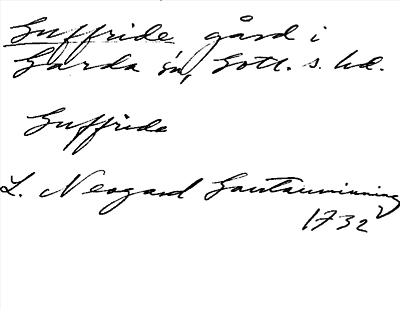 Guffride gård i
Garda sn, Gotl. s. hd.
Guffride
L. Neogard Gautauminning
1732